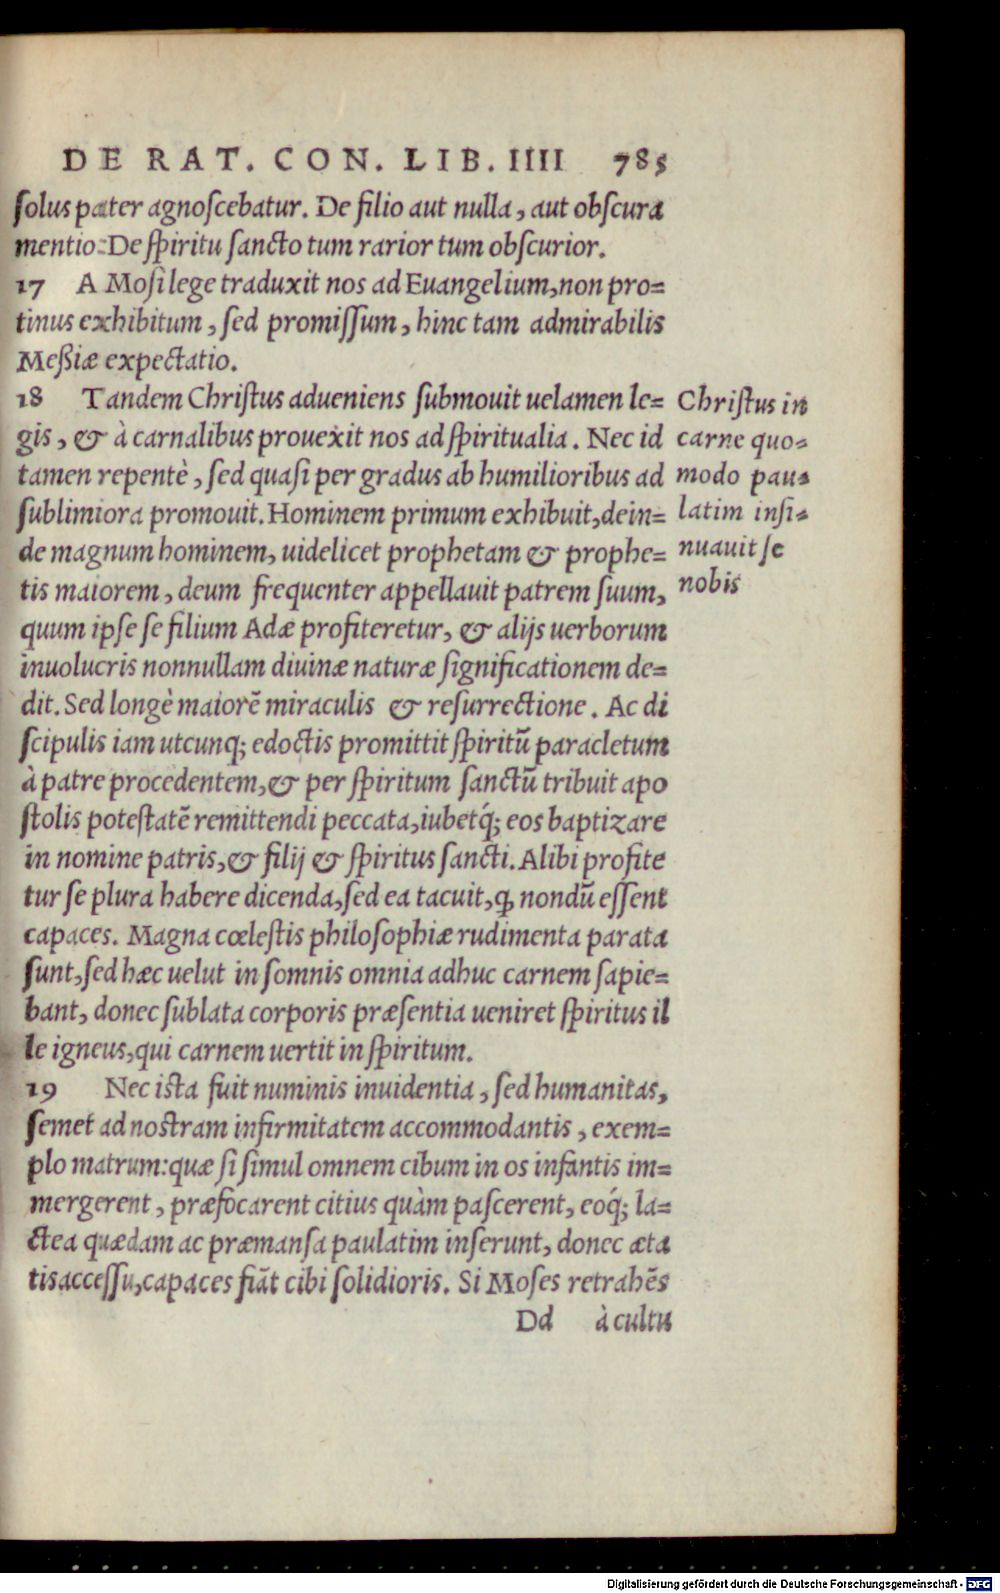 DE RAT. CON. LIB. IIII 785
ſolus pater agnoſcebatur. De filio aut nulla, aut obſcura
mentio: De ſpiritu ſancto tum rarior tum obſcurior.
17 A Moſi lege traduxit nos ad Euangelium, non pro=
tinus exhibitum, ſed promiſſum, hinc tam admirabilis
Meßiæ expectatio.
18 Tandem Chriſtus adueniens ſubmouit uelamen le=
gis, & à carnalibus prouexit nos ad ſpiritualia. Nec id
tamen repentè, ſed quaſi per gradus ab humilioribus ad
ſublimiora promouit. Hominem primum exhibuit, dein=
de magnum hominem, uidelicet prophetam & prophe=
tis maiorem, deum frequenter appellauit patrem ſuum,
quum ipſe ſe filium Adæ profiteretur, & alijs uerborum
inuolucris nonnullam diuinæ naturæ ſignificationem de=
dit. Sed longè maiorē miraculis & reſurrectione. Ac di
ſcipulis iam utcunq; edoctis promittit ſpiritū paracletum
à patre procedentem, & per ſpiritum ſanctū tribuit apo
ſtolis poteſtatē remittendi peccata, iubetq́; eos baptizare
in nomine patris, & filij & ſpiritus ſancti. Alibi profite
tur ſe plura habere dicenda, ſed ea tacuit, ꝙ nondū eſſent
capaces. Magna cœleſtis philoſophiæ rudimenta parata
ſunt, ſed hæc uelut in ſomnis omnia adhuc carnem ſapie=
bant, donec ſublata corporis præſentia ueniret ſpiritus il
le igneus, qui carnem uertit in ſpiritum.
19 Nec iſta fuit numinis inuidentia, ſed humanitas,
ſemet ad noſtram infirmitatem accommodantis, exem=
plo matrum: quæ ſi ſimul omnem cibum in os infantis im=
mergerent, præfocarent citius quàm paſcerent, eoq́; la=
ctea quædam ac præmanſa paulatim inſerunt, donec æta
tis acceſſu, capaces fiāt cibi ſolidioris. Si Moſes retrahēs
Dd à cultu
Chriſtus in
carne quo=
modo pau=
latim inſi=
nuauit ſe
nobis
Digitalisierung gefördert durch die Deutsche Forschungsgemeinschaft - DFG